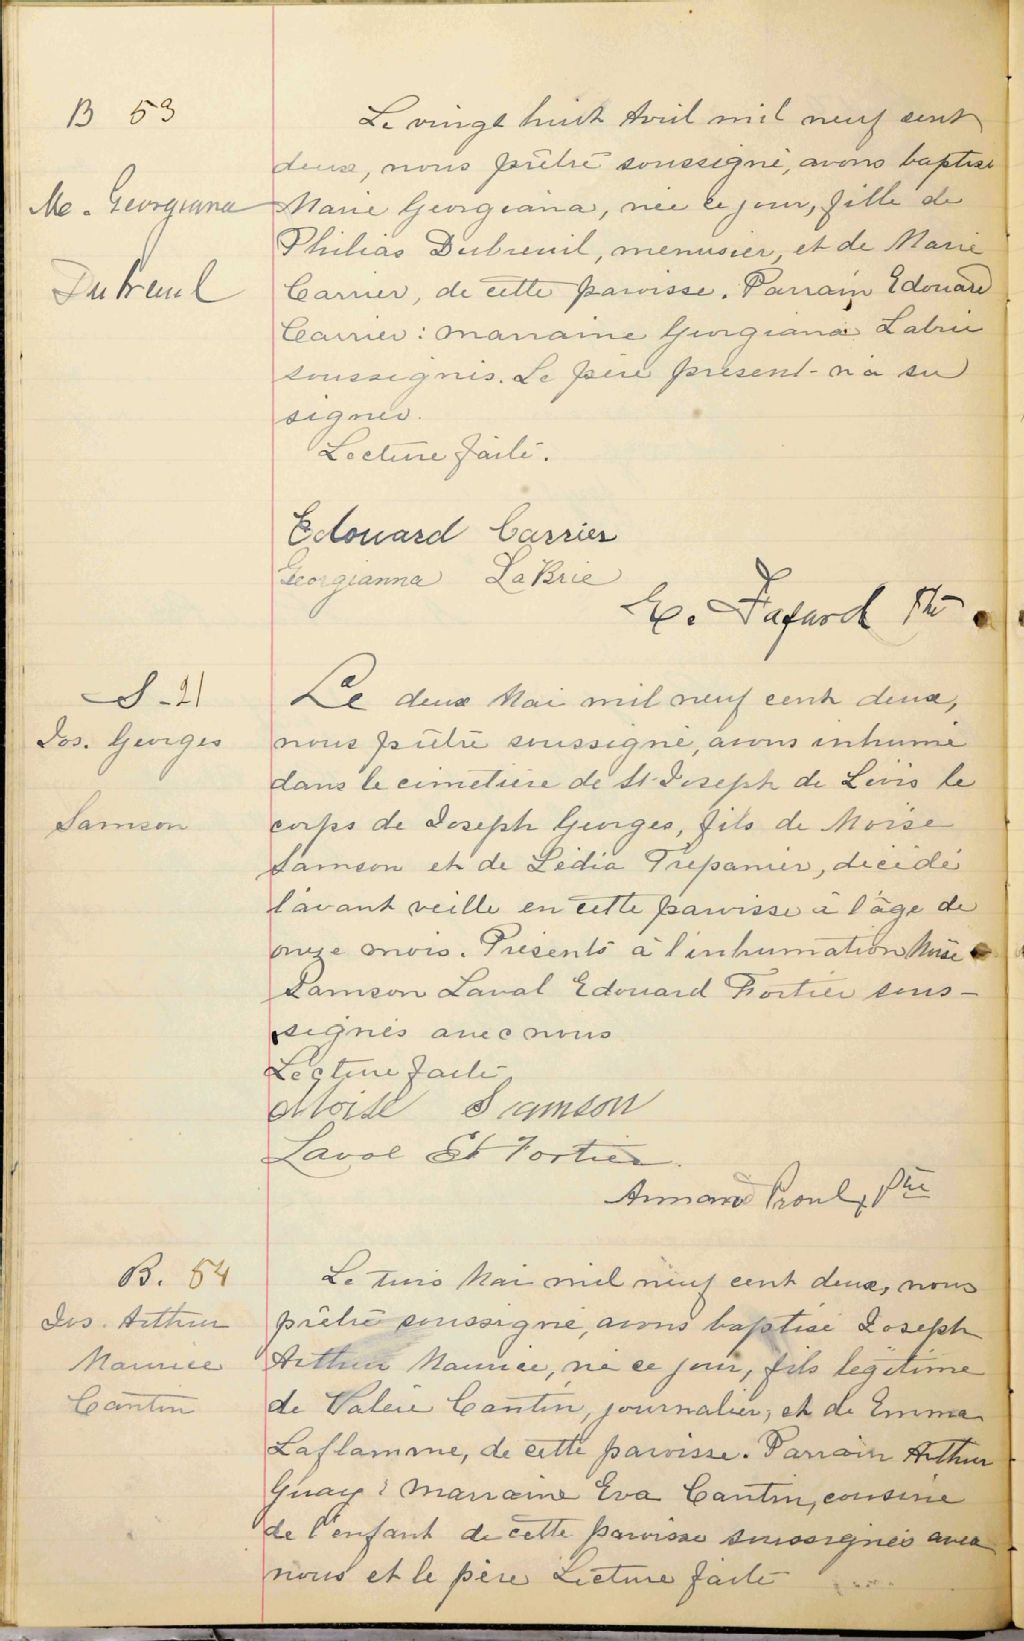 B 53
Le vingt huit Avril mil neuf cent
deux, nous prêtre soussigné, avons baptisé
Me. Georgiana
Marie Georgiana, née ce jour, fille de
Philias Dubreuil, menusier, et de Marie
Dubreuil
Carrier, de cette paroisse. Parrain Edouard
Carrier : marraine Georgiana Labrie
soussignés. Le père présent n'a su
signer.
Lecture faite.
Edouard Carrier
Georgianna LaBrie
E. Fafard Ptre
S - 21
Le deux Mai mil neuf cent deux,
Jos. Georges
nous prêtre soussigné, avons inhumé
dans le cimetière de St Joseph de Lévis le
Samson
corps de Joseph Georges, fils de Moïse
Samson et de Lédia Trépanier, décédé
l'avant veille en cette paroisse à l'âge de
onze mois. Présents à l'inhumation Moïse
Samson Laval Edouard Fortier sous-
signés avec nous
Lecture faite
Moise Samson
Laval Ed Fortier.
Armand Proulx Ptre
B. 54
Le trois Mai mil neuf cent deux, nous
Jos. Arthur
prêtre soussigné, avons baptisé Joseph
Maurice
Arthur Maurice, né ce jour, fils légitime
Cantin
de Valère Cantin, journalier, et de Emma
Laflamme, de cette paroisse. Parrain Arthur
Guay : marraine Eva Cantin, cousine
de l'enfant de cette paroisse soussignés avec
nous et le père Lecture faite